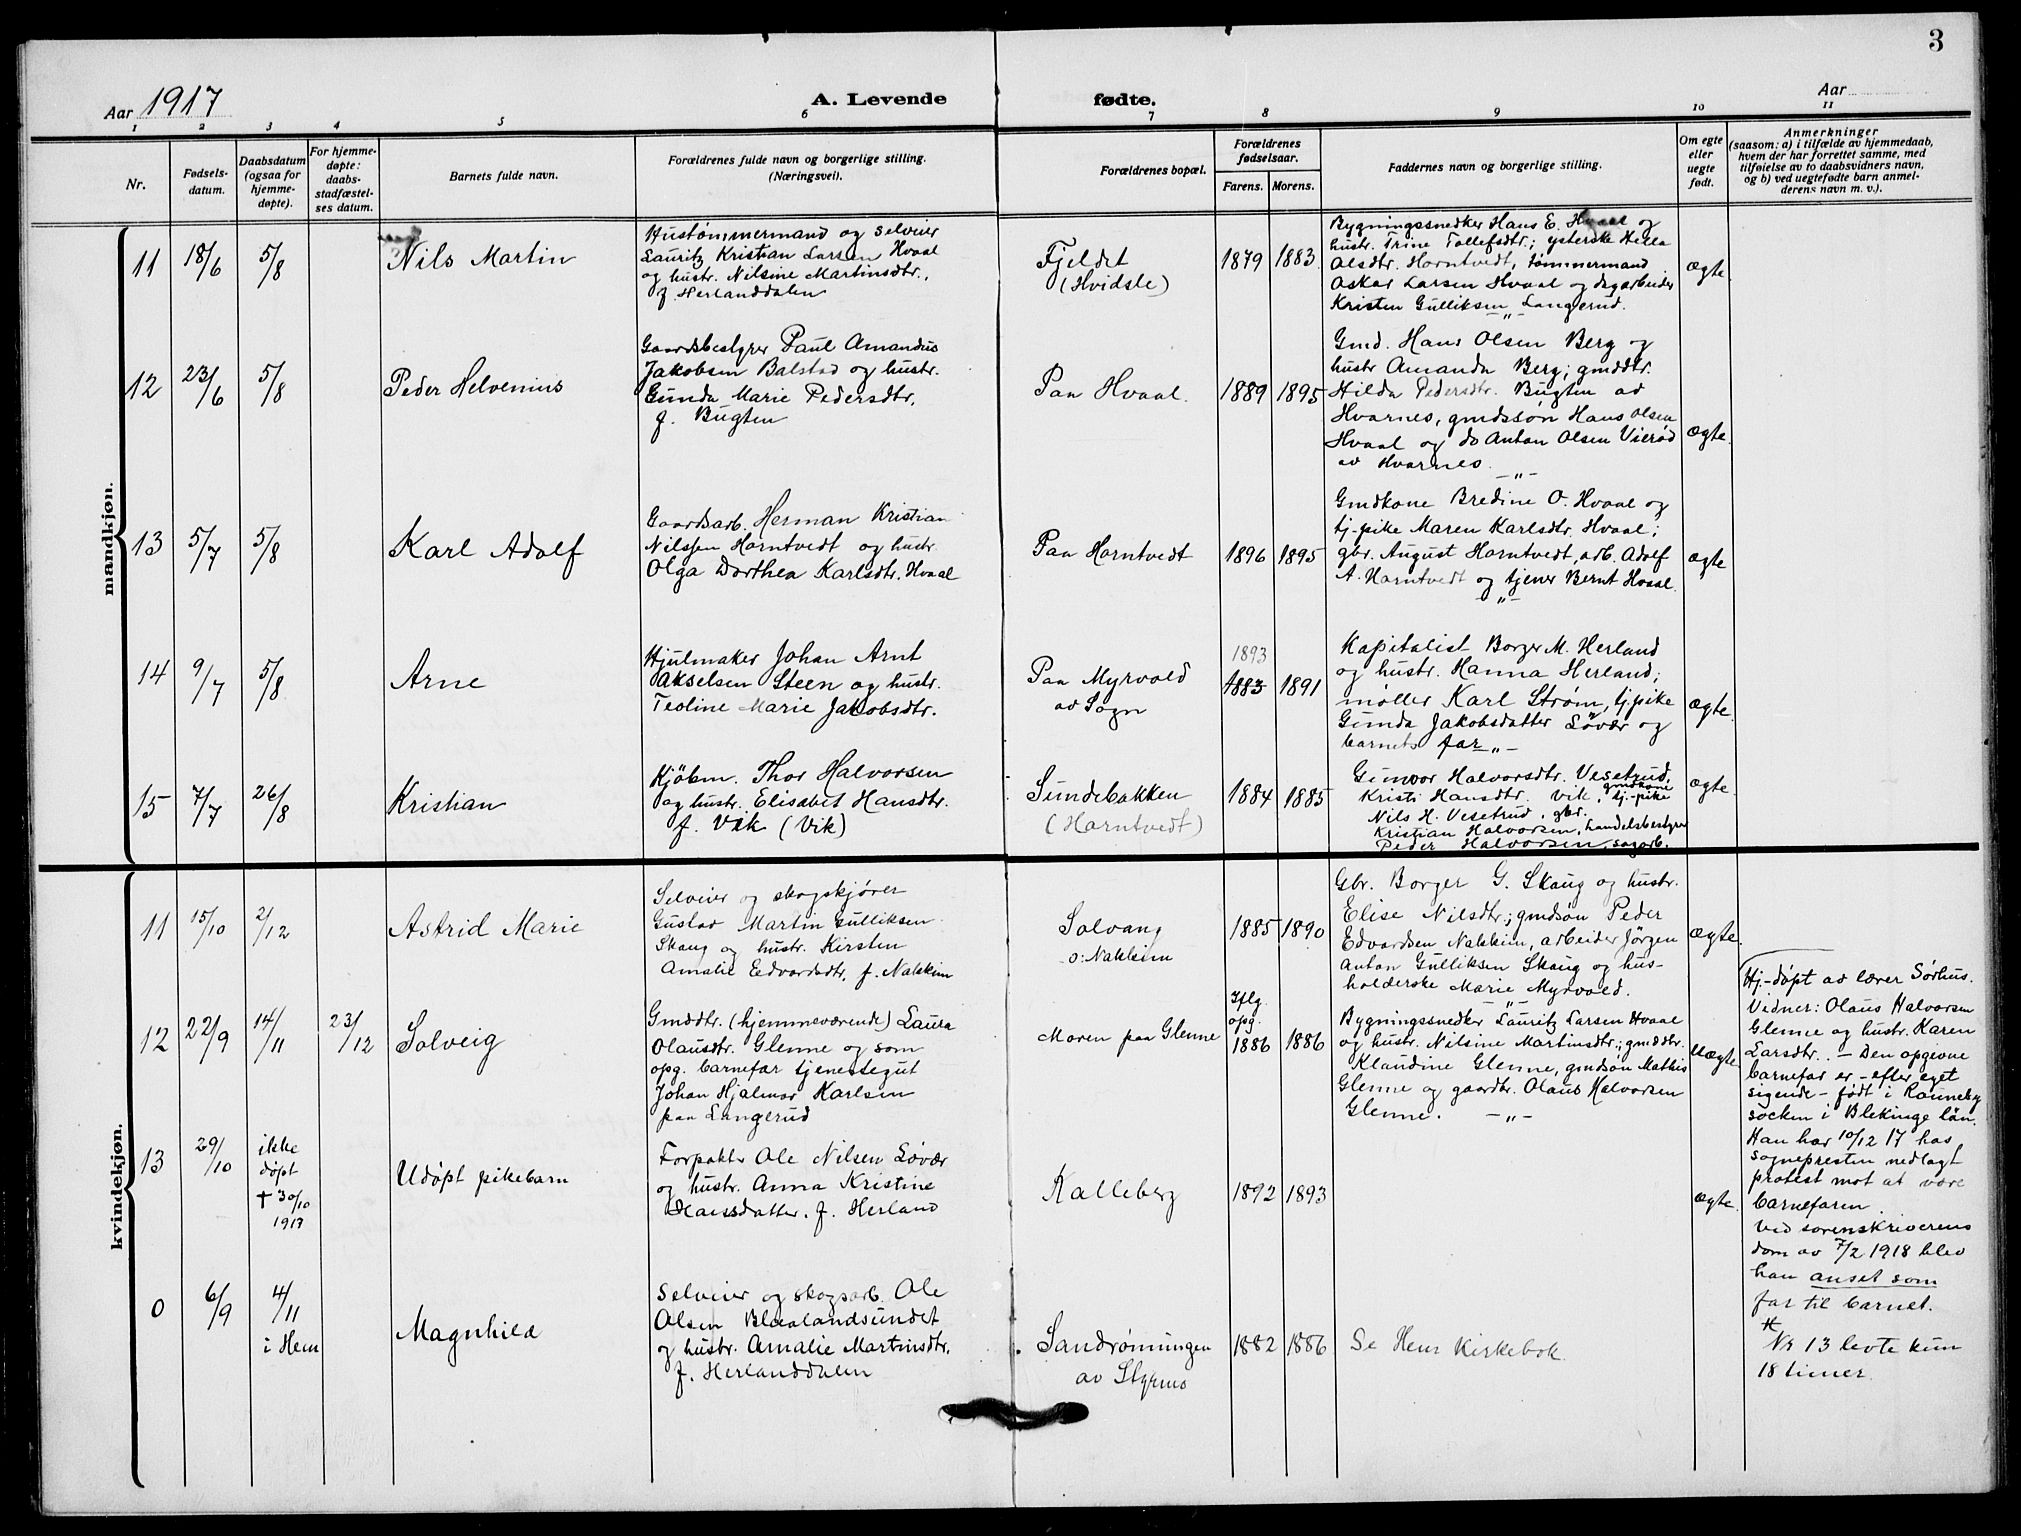 3
Aar 1917
A. Levende
fødte.
Aar
1
2
3
4
5
6
7
8
9
10
11
Nr.
Fødsels-
datum.
Daabsdatum
(ogsaa for
hjemme-
døpte).
For hjemme-
døpte:
daabs-
stadfæstel-
ses datum.
Barnets fulde navn.
Forældrenes fulde navn og borgerlige stilling.
(Næringsvei).
Forældrenes bopæl.
Forældrenes
fødselsaar.
Farens.
Morens.
Faddernes navn og borgerlige stilling.
Om egte
eller
uegte
født.
Anmerkninger
(saasom: a) i tilfælde av hjemmedaab,
hvem der har forrettet samme, med
tilføielse av to daabsvidners navn,
og b) ved uegtefødte barn anmel-
derens navn m. v.).
mandkjøn.
11
18/6
5/8
Nils Martin
Hustømmermand og selveier
Lauritz Kristian Larsen Hvaal
og hustr. Nilsine Martinsdtr.,
f. Herlanddalen
Fjeldet
(Hvidsle)
1879
1883
Bygningssnedker Hans E. Hvaal og
hustr. Trine Tollefsdtr.; ysterske Hella
Olsdtr. Horntvedt, tømmermand
Oskar Larsen Hvaal og dagarbeider
Kristen Gulliksen Langerud.
-"-
ægte
12
23/6
5/8
Peder Helvenius
Gaardsbestyrer Paul Amandus
Jakobsen Balstad og hustr.
Gunda Marie Pedersdtr,
f. Bugten
Paa Hvaal.
1889
1895
Gmd. Hans Olsen Berg og
hustr Amanda Berg; gmddtr.
Hilda Pedersdtr. Bugten av
Hvarnes, gmdssøn Hans Olsen
Hvaal og do Anton Olsen Vierød
av Hvarnes.
-"-
ægte.
13
5/7
5/8
Karl Adolf
Gaardsarb. Herman Kristian
Nilssen Horntvedt og hustr.
Olga Dorthea Karlsdtr. Hvaal
Paa Horntvedt
1896
1895
Gmdkone Bredine O. Hvaal og
tj-pike Maren Karlsdtr. Hvaal;
gbr. August Horntvedt, arb. Adolf
A. Horntvedt og tjener Bernt Hvaal.
-"-
ægte
14
9/7
5/8
Arne
Hjulmaker Johan Arnt
Akselsen Steen og hustr.
Teoline Marie Jakobsdtr.
Paa Myrvold
av Sogn
1893
1883
1891
Kapitalist Borger M. Herland
og hustr. Hanna Herland;
møller Karl Strøm, tj.pike
Gunda Jakobsdatter Løvær og
barnets far -"-
ægte.
15
7/7
26/8
Kristian
Kjøbm. Thor Halvorsen
og hustr. Elisabet Hansdtr.
f. Vik (Vik)
Sundebakken
(Horntvedt)
1884
1885
Gunvor Halvorsdtr. Vesetrud,
gmdkone
Kristi Hansdtr. Vik, tj.-pike
Nils H. Vesetrud, gbr.
Kristian Halvorsen, handelsbestyrer
Peder Halvorsen, sagarb.
ægte.
kvindekjøn.
11
15/10
2/12
Astrid Marie
Selveier og skogskjører
Gustav Martin Gulliksen
Skaug og hustr. Kirsten
Amalie Edvardsdtr, f. Nakkim
Solvang
o: Nakkeim
1885
1890
Gbr. Borger G. Skaug og hustr.
Elise Nilsdtr.; gmdsøn Peder
Edvardsen Nakkeim, arbeider Jørgen
Anton Gulliksen Skaug og hus-
holderske Marie Myrvold.
-"-
ægte.
12
22/9
14/11
23/12
Solveig
Gmddtr. (hjemmeværende) Laura
Olausdtr. Glenne og som
opg. barnefar tjenestegut
Johan Hjalmar Karlsen
paa Langerud
Moren paa Glenne
Iflg.
opg.
1886
1886
Bygningssnedker Lauritz Larsen Hvaal
og hustr. Nilsine Martinsdtr.; gmddtr.
Klaudine Glenne, gmdsøn Mathis
Glenne og gaardbr. Olaus Halvorsen
Glenne. -"-
Uægte
Hj.-døpt av lærer Sørhus.
Vidner: Olaus Halvorsen
Glenne og hustr. Karen
Larsdtr. - Den opgivne
barnefar er - efter eget
sigende - født i Ronneby
socken i Blekinge län.
Han har 10/12 17 hos
sognepresten nedlagt
protest mot at være
barnefaren.
Ved sorenskriverens
dom av 7/2 1918 blev
han anset som
far til barnet.
13
29/10
ikke
døpt
† 30/10
1917
Udøpt pikebarn
Forpakter Ole Nilsen Løvær
og hustr. Anna Kristine
Hansdatter. f. Herland
Kalleberg
1892
1893
ægte.
Nr 13 levte kun
18 timer.
0
6/9
4/11
i Hem
Magnhild
Selveier og skogsarb. Ole
Olsen Blaalandsundet
og hustr. Amalie Martinsdtr.
f. Herlanddalen
Sandrønningen
av Styrmo
1882
1886
Se Hem Kirkebok.